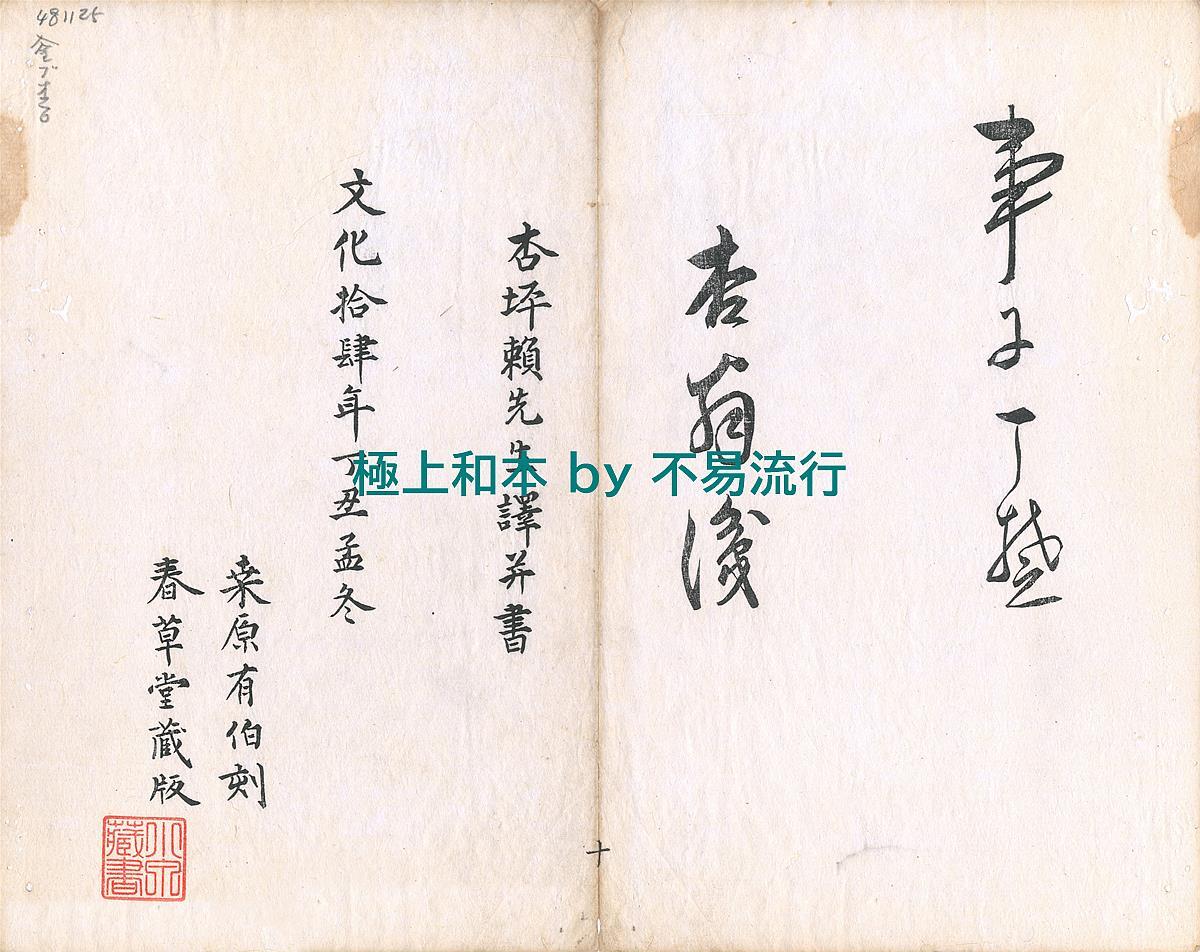 事子丁愁
杏翁識
杏坪賴先生譯并書
文化拾肆年丁丑孟冬
桒原有伯刻
春草堂蔵版
十
極上和本 by 不易流行
481125